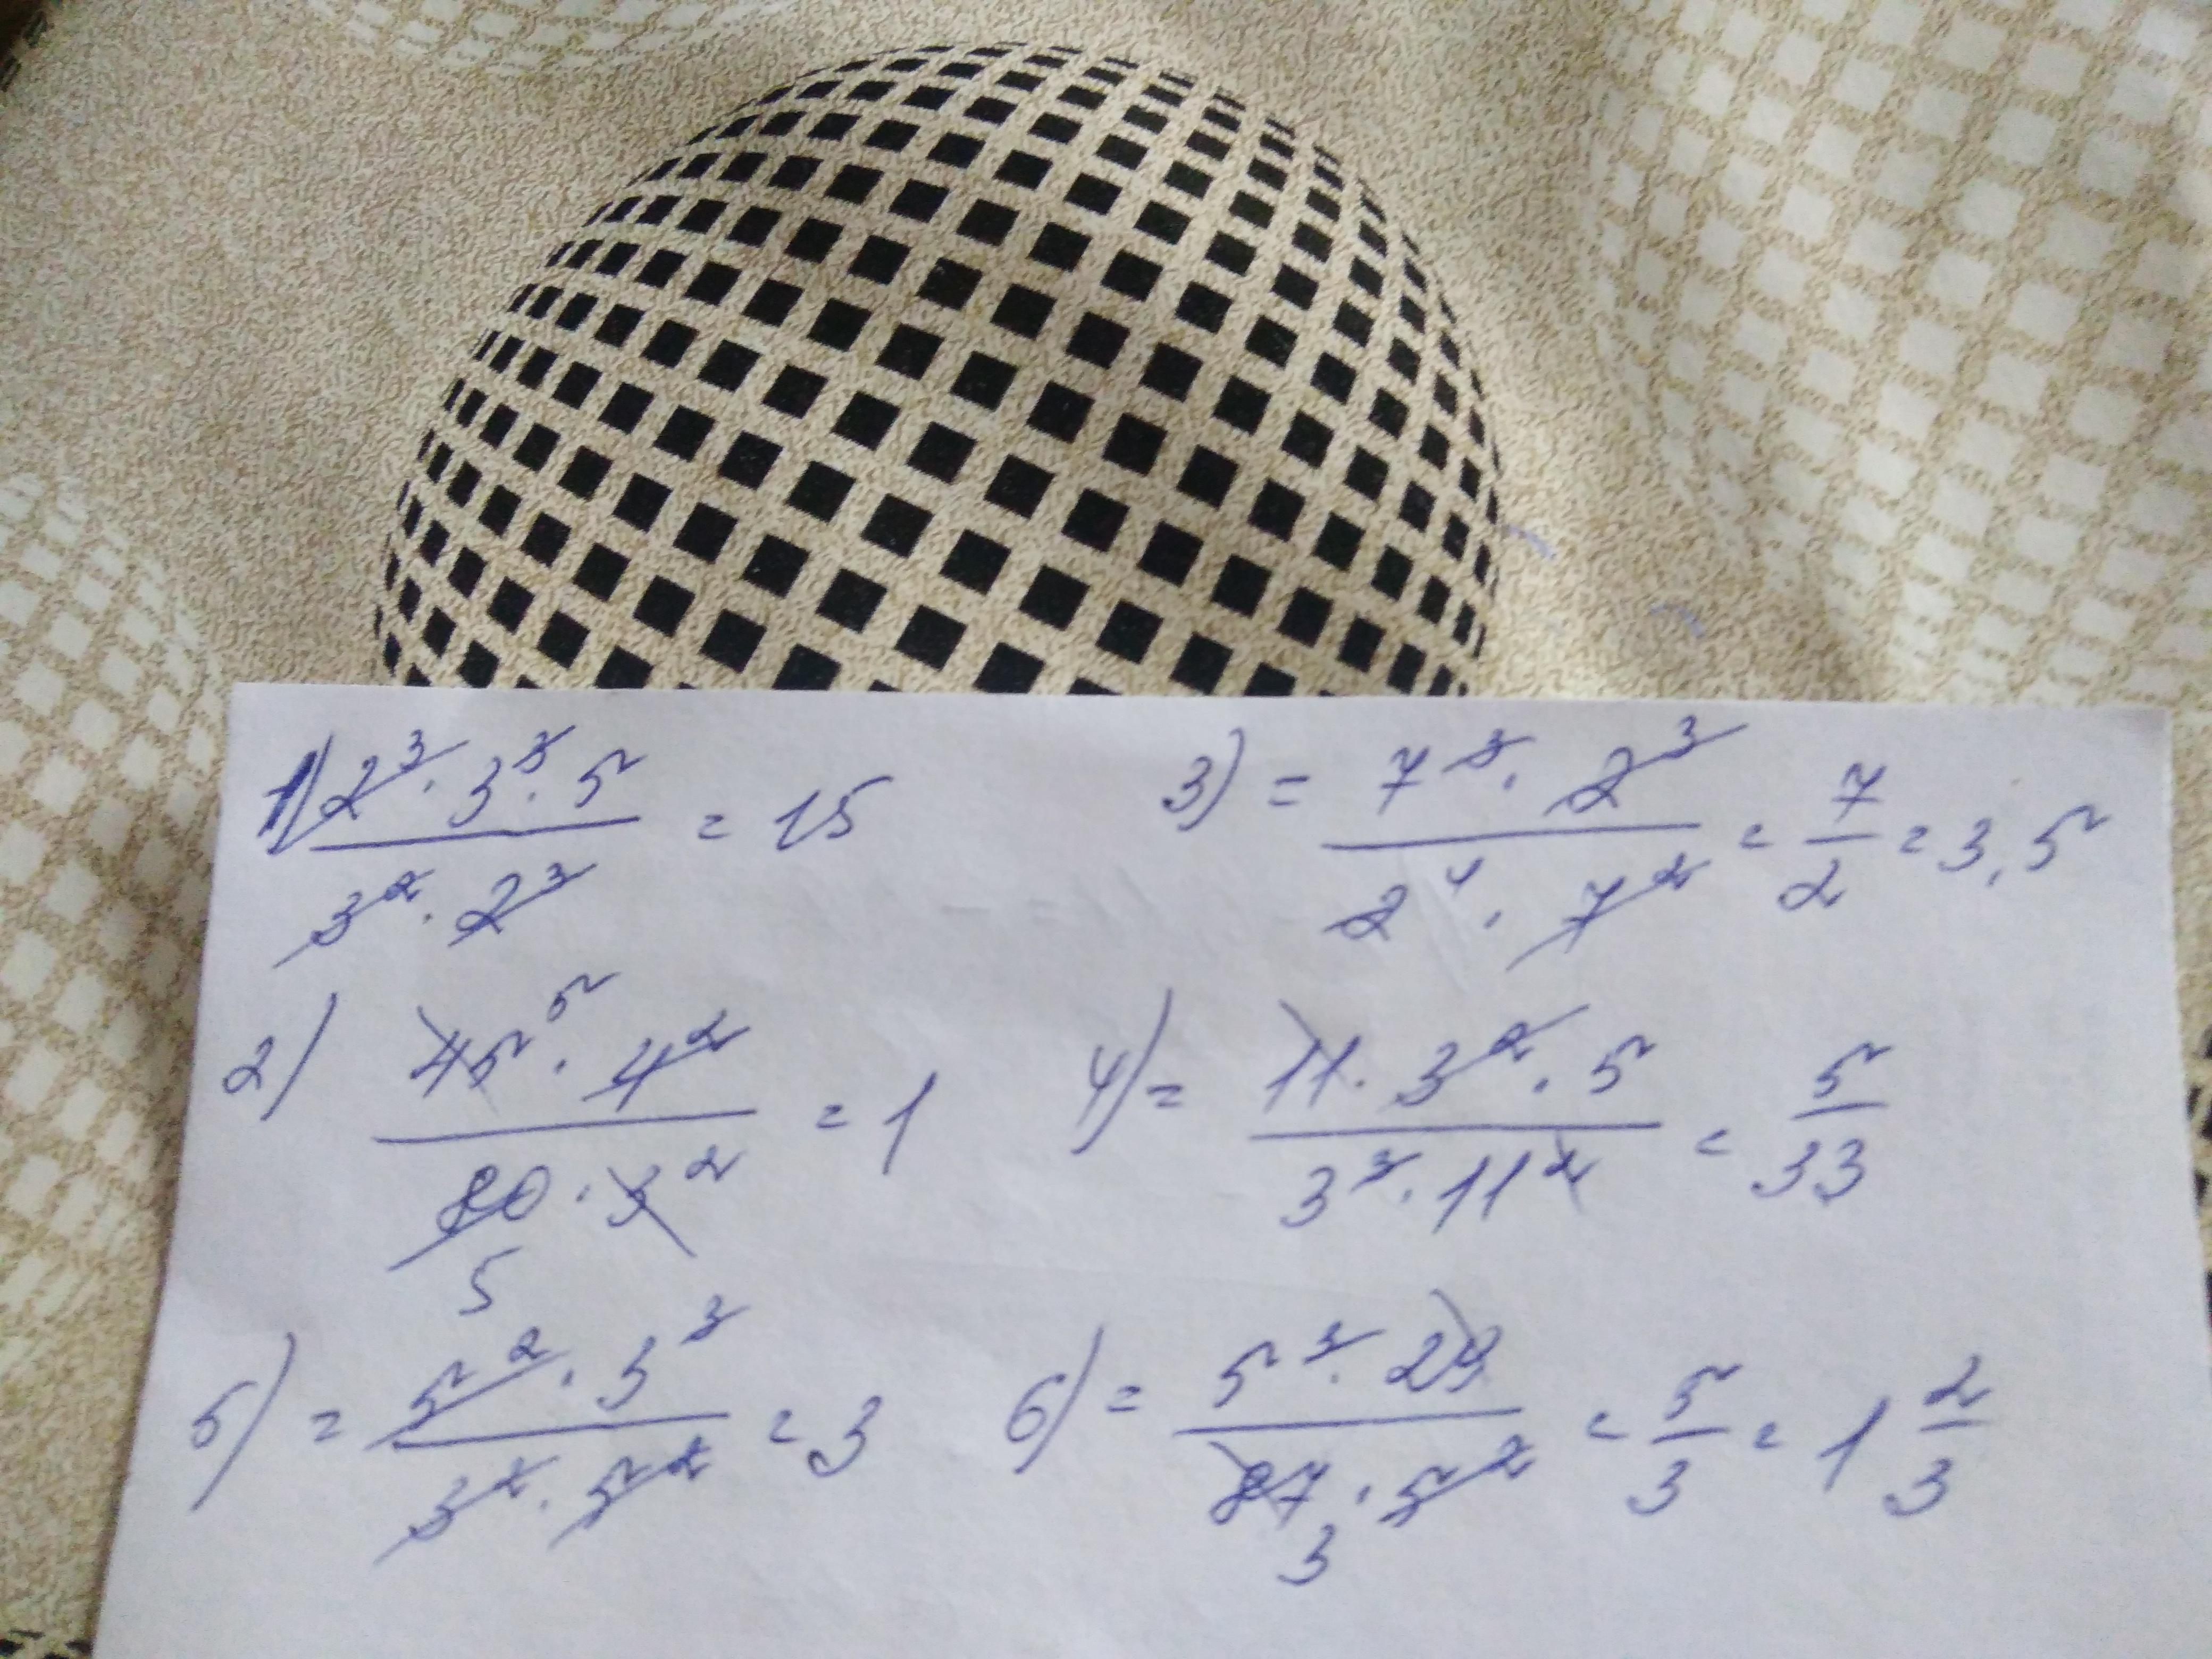 1) 2³ · 3³ · 5 / 3² · 2³ = 15
3) = 7³ · 2³ / 2⁴ · 7² = 7/2 = 3,5
2) 45⁵ · 4² / 80 · 3² = 1
5
4) = 11 · 3² · 5 / 3³ · 11² = 5/33
5) = 5² · 3³ / 3² · 5² = 3
6) = 5³ · 29 / 87 · 5² = 5/3 = 1 2/3
3